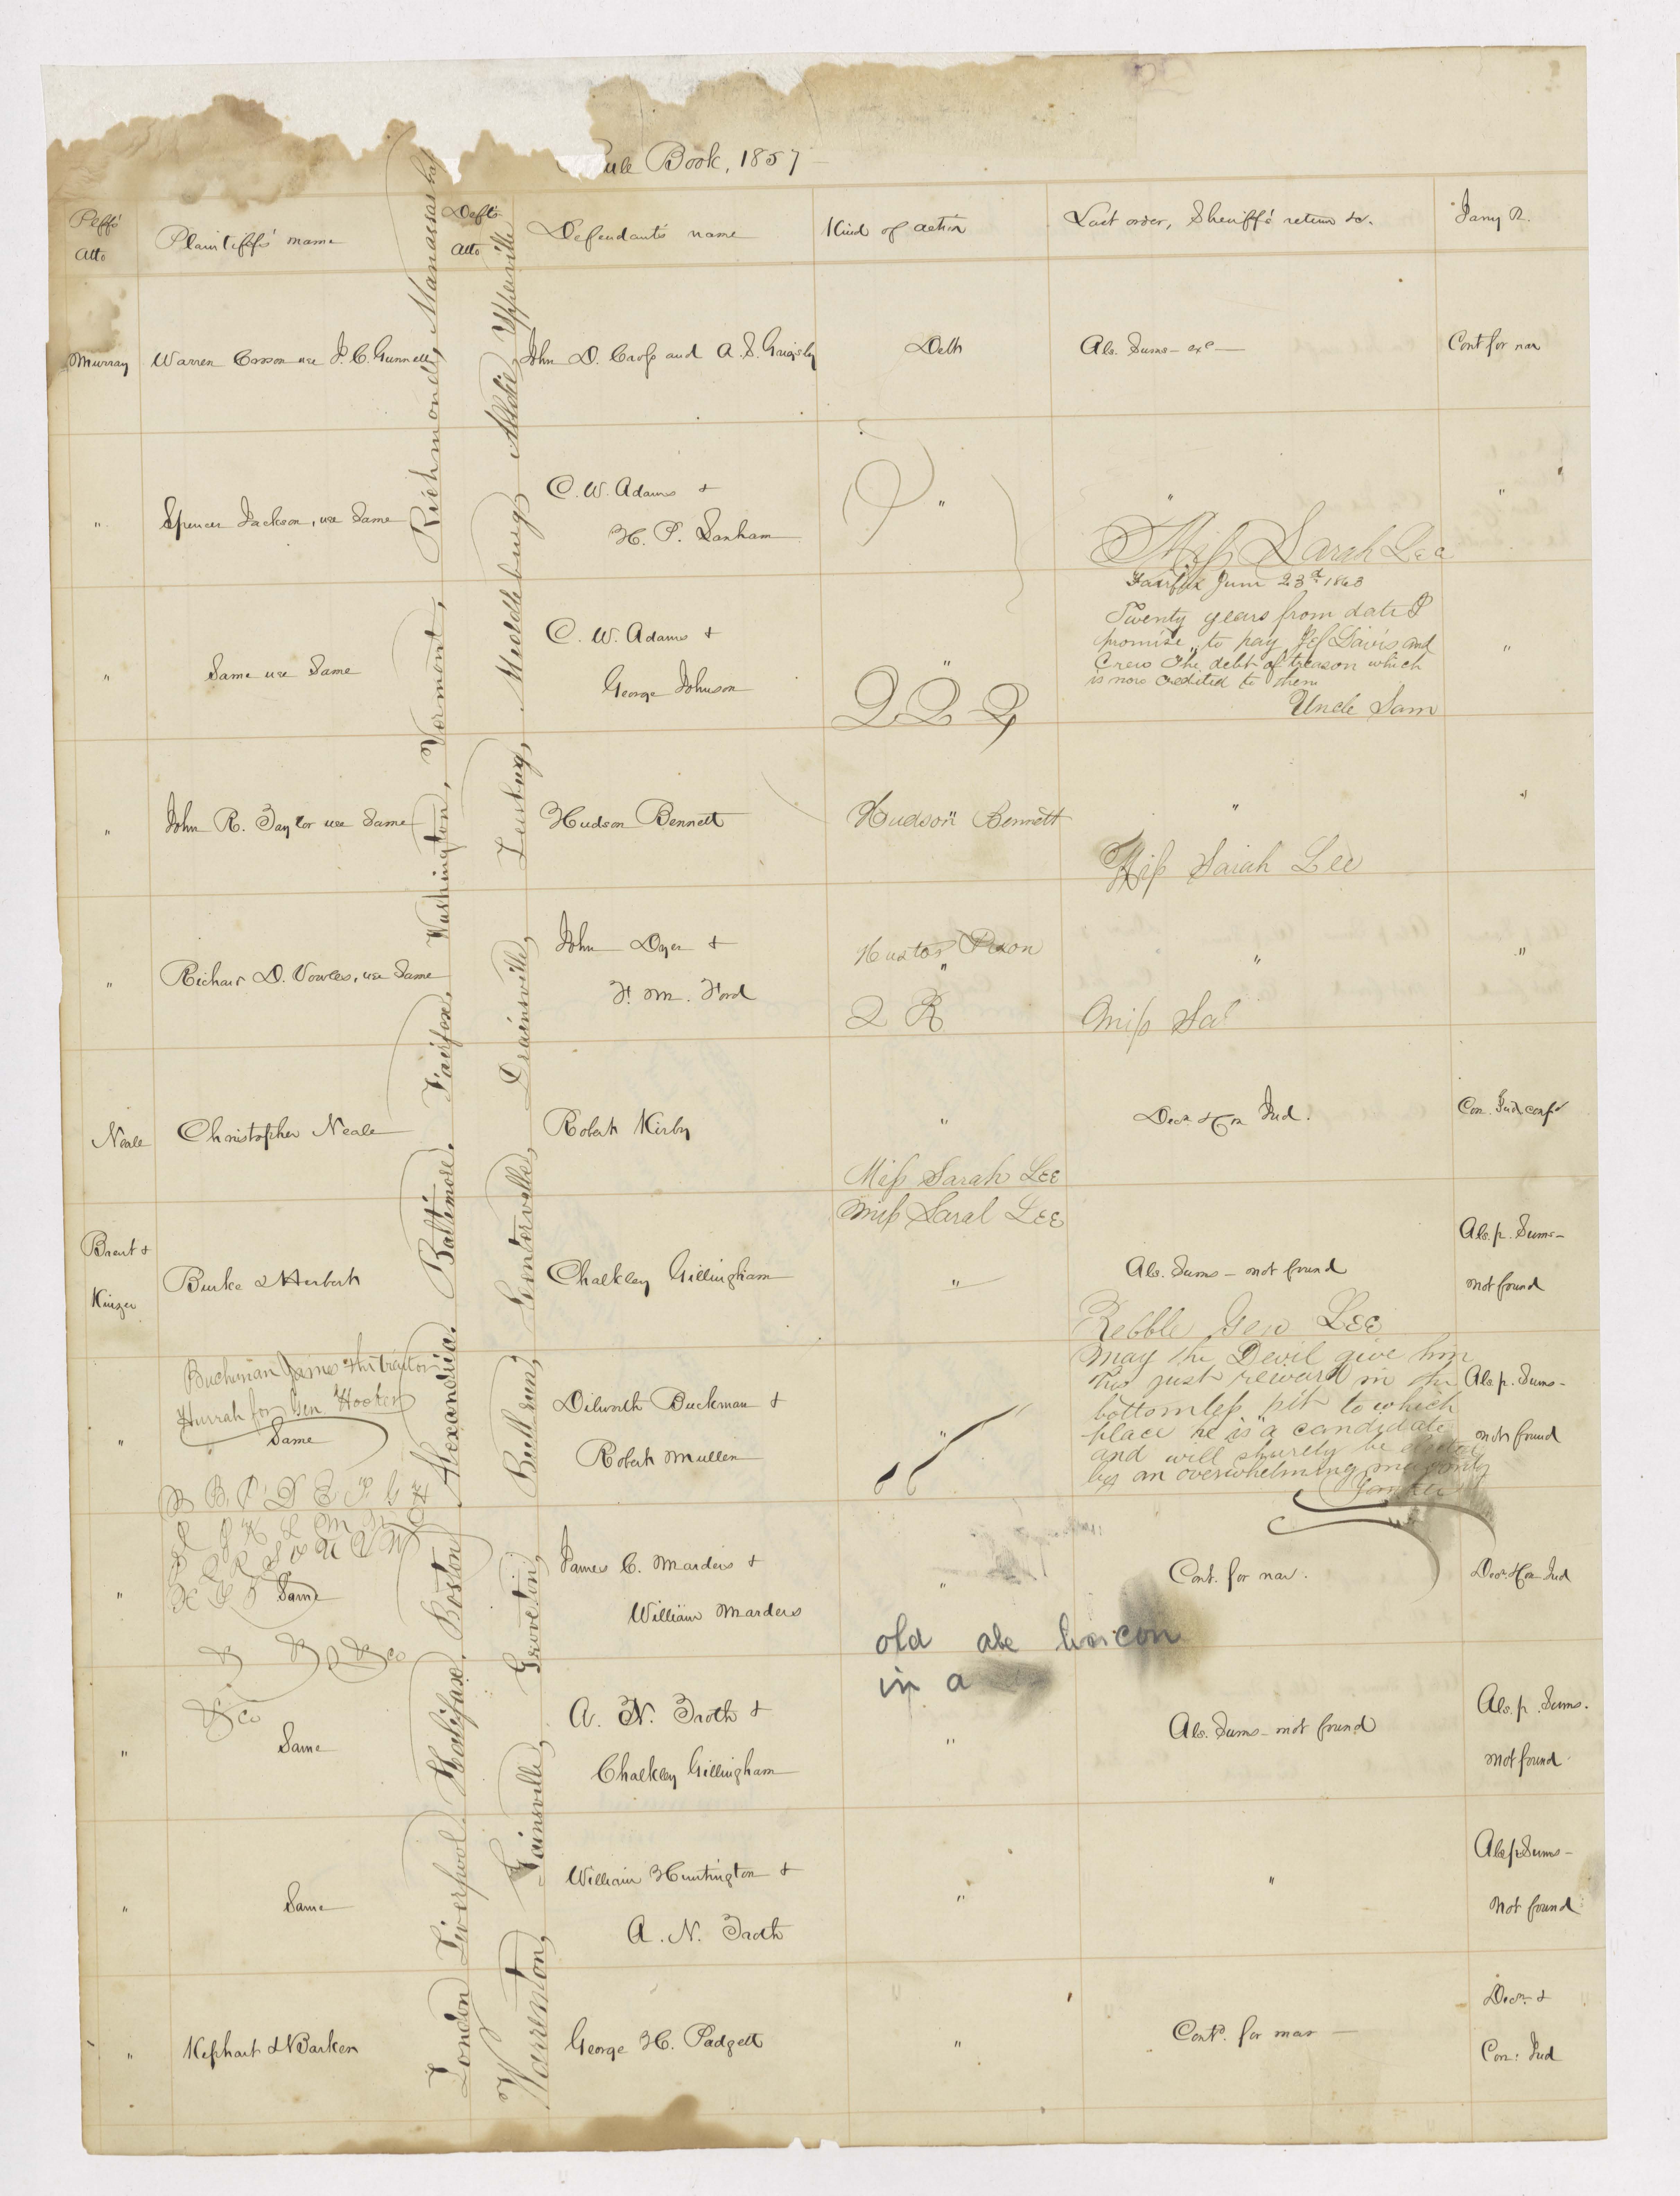 ule Book, 1857
Plffs' Atto
Plaintiffs' name
Defts Atto
Defendants name
Kind of action
Last order, Sheriff's return &c.
Jany R.
Murray
Warren Cosson use J. C. Gunnell
John D. Cross and A. S. Grigsby
Debt
Als. Sums - exe
Cont for nar
"
Spencer Jackson, use Same
C. W. Adams &
H. P. Lanham
"
"
"
Miss Sarah Lee
Fairfax June 23d 1863
Twenty years from date I
promise to pay Jef Davis and
Crew The debt of treason which
is now credited to them
Uncle Sam
"
Same use Same
C. W. Adams &
George Johnson
"
"
2 2 2
"
John R. Taylor use Same
Hudson Bennett
"
Hudson Bennett
"
"
Miss Sarah Lee
"
Richard D. Vowles, use Same
John Dyer &
F. M. Ford
"
2 R
"
"
Miss Sa
Neale
Christopher Neale
Robert Kirby
"
Decn & Con Jud.
Con. Jud. confd
Miss Sarah LEE
Miss Saral LEE
Brent &
Kinzer
Burke & Herbert
Chalkley Gillingham
"
Als. Sums - not found
Als. p. Sums -
not found
Rebble Gen LEE
May the Devil give him
His just reward in the
bottomless pit to which
place he is a candidate
and will shurely be elected
by an overwhelming majority
Buchanan James the traitor
Hurrah for Gen Hooker
"
Same
Dilworth Buckman &
Robert Mullen
"
"
Als p. Sums -
not found
"
Same
James C. Marders &
William Marders
"
Cont. for nar.
Decn & Con Jud
old abe
in a
"
Same
A. N. Troth &
Chalkley Gillingham
"
Als. Sums - not found
Als. p. Sums.
not found
& Co
"
Same
William Huntington &
A. N. Troth
"
"
Als p Sums -
Not found
"
Kephart & Barker
George H. Padgett
"
Contd. for nar
Decn. &
Con. Jud
London Liverpool Halifax, Boston Alexandria. Baltimore. Fairfax, Washington, Vermont, Richmond, Manassas
Warrenton, Gainsville, Groveton, Bull run, Centerville, Drainsville, Leesburg, Meddleburg, Aldie, Upperville